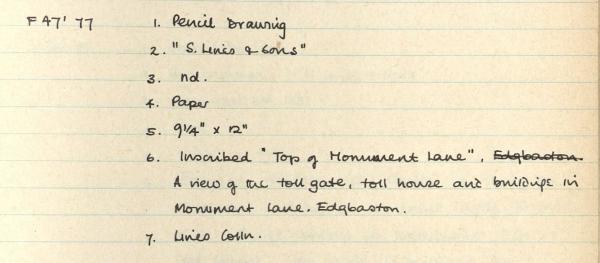 F 47' 77 1. Pencil Drawing
2. "S. Lines & Sons"
3. nd.
4. Paper
5. 9 1/4" x 12"
6. Inscribed "Top of Monument Lane", Edgbaston.
A view of the toll gate, toll house and buildings in
Monument Lane. Edgbaston.
7. Lines Colln.